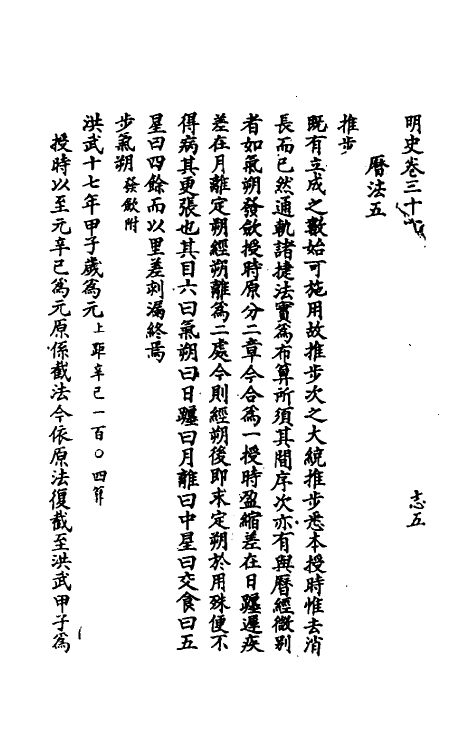 明史卷三十
志五
曆法五
推步
既有立成之數始可施用故推步次之大統推步悉本授時惟去消
長而已然通軌諸捷法實為布算所須其間序次亦有與曆經微别
者如氣朔發斂授時原分二章今合為一授時盈縮差在日躔遲疾
差在月離定朔經朔離為二處今則經朔後即求定朔於用殊便不
得病其更張也其目六曰氣朔曰日躔曰月離曰中星曰交食曰五
星曰四餘而以里差刻漏終焉
步氣朔 發斂附
洪武十七年甲子歲為元 上距辛巳一百〇四算
授時以至元辛巳為元原係截法今依原法復截至洪武甲子為